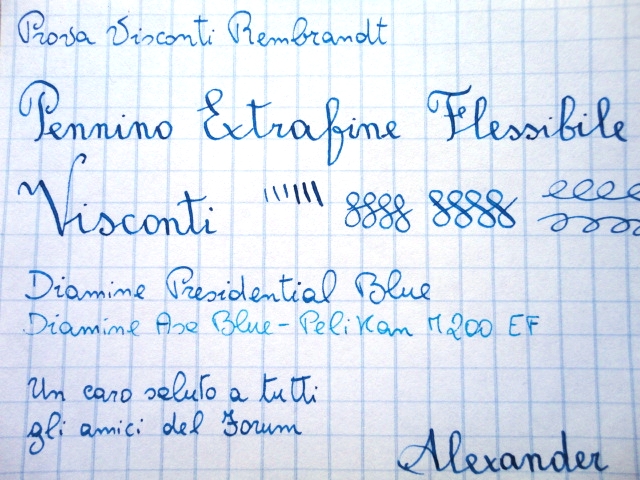 Prova Visconti Rembrandt
Pennino Extrafine Flessibile
Visconti
Diamine Presidential Blue
Diamine Asa Blue - Pelikan M200 EF
Un caro saluto a tutti
gli amici del Forum
Alexander